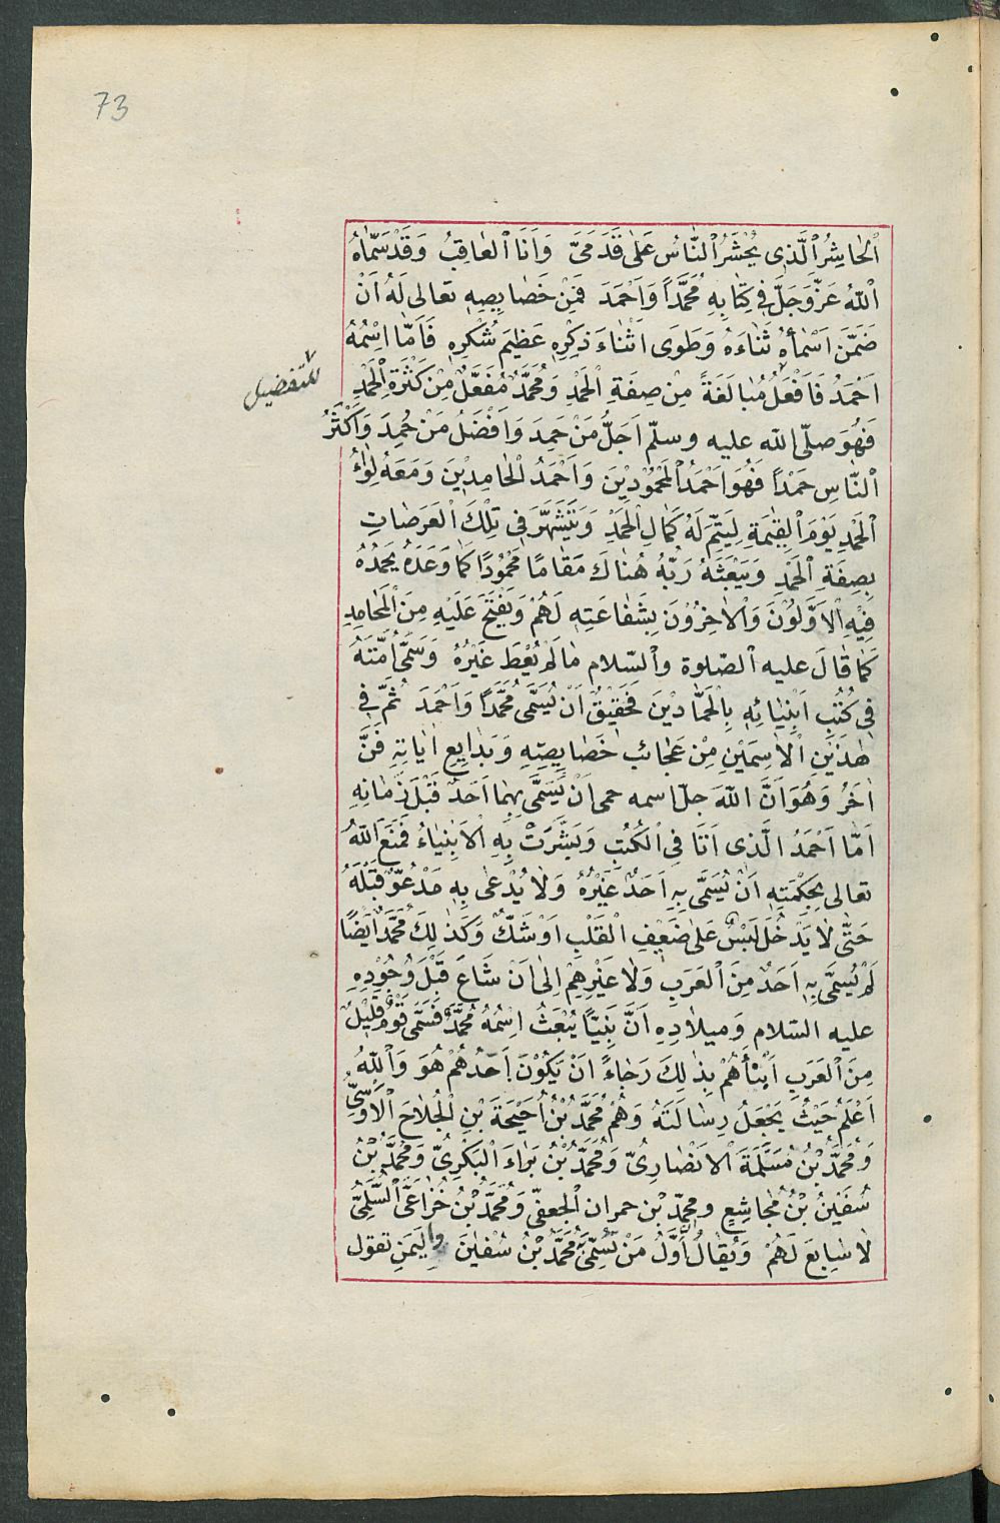 73
اْلحَاشِرُ اْلَّذى يُحْشَرُ اْلنَّاسُ عَلٰى قَدَمَىَّ وَاَنَا اْلعٰاقِبُ وَقَدْ سَمّٰاهُ
اْللّٰهُ عَزَّ وَجَلَّ فِي كِتٰابِهِ مُحَمَّداً وَاَحْمَدَ فَمِنْ خَصٰايِصِهِ تعالى لَهُ اَنْ
ضَمَّنَ اَسْمٰأهُ ثَنٰاءَهُ وَطَوَى اَثْنٰاءَ ذِكْرِهِ عَظِيمَ شُكْرِهِ فَاَمَّا اِسْمُهُ
اَحْمَدُ فَاَفْعَلُ مُبٰالَغَةً مِنْ صِفَةِ الْحَمْدِ وَمُحَمَّدٌ مُفَعَّلٌ مِنْ كَثْرَةِ الْحَمْدِ
للتفضيل
فَهُوَ صلّى الله عليه وسلّم اَجَلُّ مَنْ حَمِدَ وَاَفْضَلُ مَنْ حُمِدَ وَاَكْثَرُ
اْلنَّاسِ حَمْداً فَهُوَ اَحْمَدُ اْلمَحْمُودِيْنَ وَاَحْمَدُ اْلحٰامِدِيْنَ وَمَعَهُ لِوٰاءُ
اْلحَمْدِ يَوْمَ اْلقِيٰمَةِ لِيَتِمَّ لَهُ كَمٰالِ اْلحَمْدِ وَيَتَشَهَّرَ فِى تِلْكَ اْلعَرَصٰاتِ
بِصِفَةِ الْحَمْدِ وَيَبْعَثَهُ رَبُّهُ هُنٰاكَ مَقٰامًا مَحْمُودًا كَمٰا وَعَدَهُ يَحْمَدُهُ
فِيْهِ اْلاَوَّلُوْنَ وَاْلاٰخِرُوْنَ بِشَفٰاعَتِهِ لَهُمْ وَيُفْتَحُ عَلَيْهِ مِنَ اْلمَحٰامِدِ
كَمٰا قٰالَ عليه الصّلوة والسّلام مٰا لَمْ يُعْطَ غَيْرُهُ وَسَمَّى اُمَّتَهُ
فِى كُتُبِ اَنْبِيٰائِهِ بِالْحَمّٰادِيْنَ فَحَقِيْقٌ اَنْ يُسَمّٰى مُحَمَّدًا وَاَحْمَدَ ثُمَّ فِى
هٰذَيْنِ اْلاِسْمَيْنِ مِنْ عَجٰائبِ خَصٰايِصِهِ وَبَدٰايِعِ اٰيٰاتِهِ فَنٌّ
اٰخَرُ وَهُوَ اَنَّ اللّٰهَ جلّ اسمه حمى اَنْ يُسَمّٰى بِهِمٰا اَحَدٌ قَبْلَ زَمٰانِهِ
اَمّٰا اَحْمَدُ الَّذى اَتَا فِى اْلكُتُبِ وَبَشَّرَتْ بِهِ اْلاَنْبِيٰاءُ فَمَنَعَ اللّٰهُ
تعالى بِحِكْمَتِهِ اَنْ يُسَمّٰى بِهِ اَحَدٌ غَيْرُهُ وَلٰا يُدْعٰى بِهِ مَدْعُوٌّ قَبْلَهُ
حَتّٰى لٰا يَدْخُلَ لَبْسٌ عَلٰى ضَعِيْفِ الْقَلْبِ اَوْ شَكٌّ وَكَذٰلِكَ مُحَمَّدٌ اَيْضًا
لَمْ يُسَمَّى بِهِ اَحَدٌ مِنَ الْعَرَبِ وَلٰا غَيْرِهِمْ اِلٰى اَنْ شَاعَ قَبْلَ وُجُوْدِهِ
عليه السّلام وَمِيلٰادِهِ اَنَّ نَبِيًّا يُبْعَثُ اِسْمُهُ مُحَمَّدٌ فَسَمَّى قَوْمٌ قَلِيْلٌ
مِنَ الْعَرَبِ اَبْنٰأَهُمْ بِذٰلِكَ رَجٰاءً اَنْ يَكُوْنَ اَحَدُهُمْ هُوَ وَاللّٰهُ
اَعْلَمُ حَيْثُ يَجْعَلُ رِسٰالَتَهُ وَهُمْ مُحَمَّدُ بْنُ اُحَيْحَةَ بْنِ الْجُلٰاحَ الْاَوْسِىُّ
وَمُحَمَّدُ بْنُ مُسَلَّمَةَ الْاَنْصٰارِىُّ وَمُحَمَّدُ بْنُ بَرٰاءَ الْبَكْرِىُّ وَمُحَمَّدُ بْنُ
سُفَيْنُ بْنُ مُجٰاشِعٍ ومحمّد بْن حمران الْجعفىّ وَمُحَمَّدُ بْنُ خُزٰاعَىَّ السُّلَمِىُّ
لٰا سٰابِعَ لَهُمْ وَيُقٰالُ اَوَّلُ مَنْ تَسَمّٰى مُحَمَّدُ بْنُ سُفْيٰنَ وَالْيَمَنِ تقول